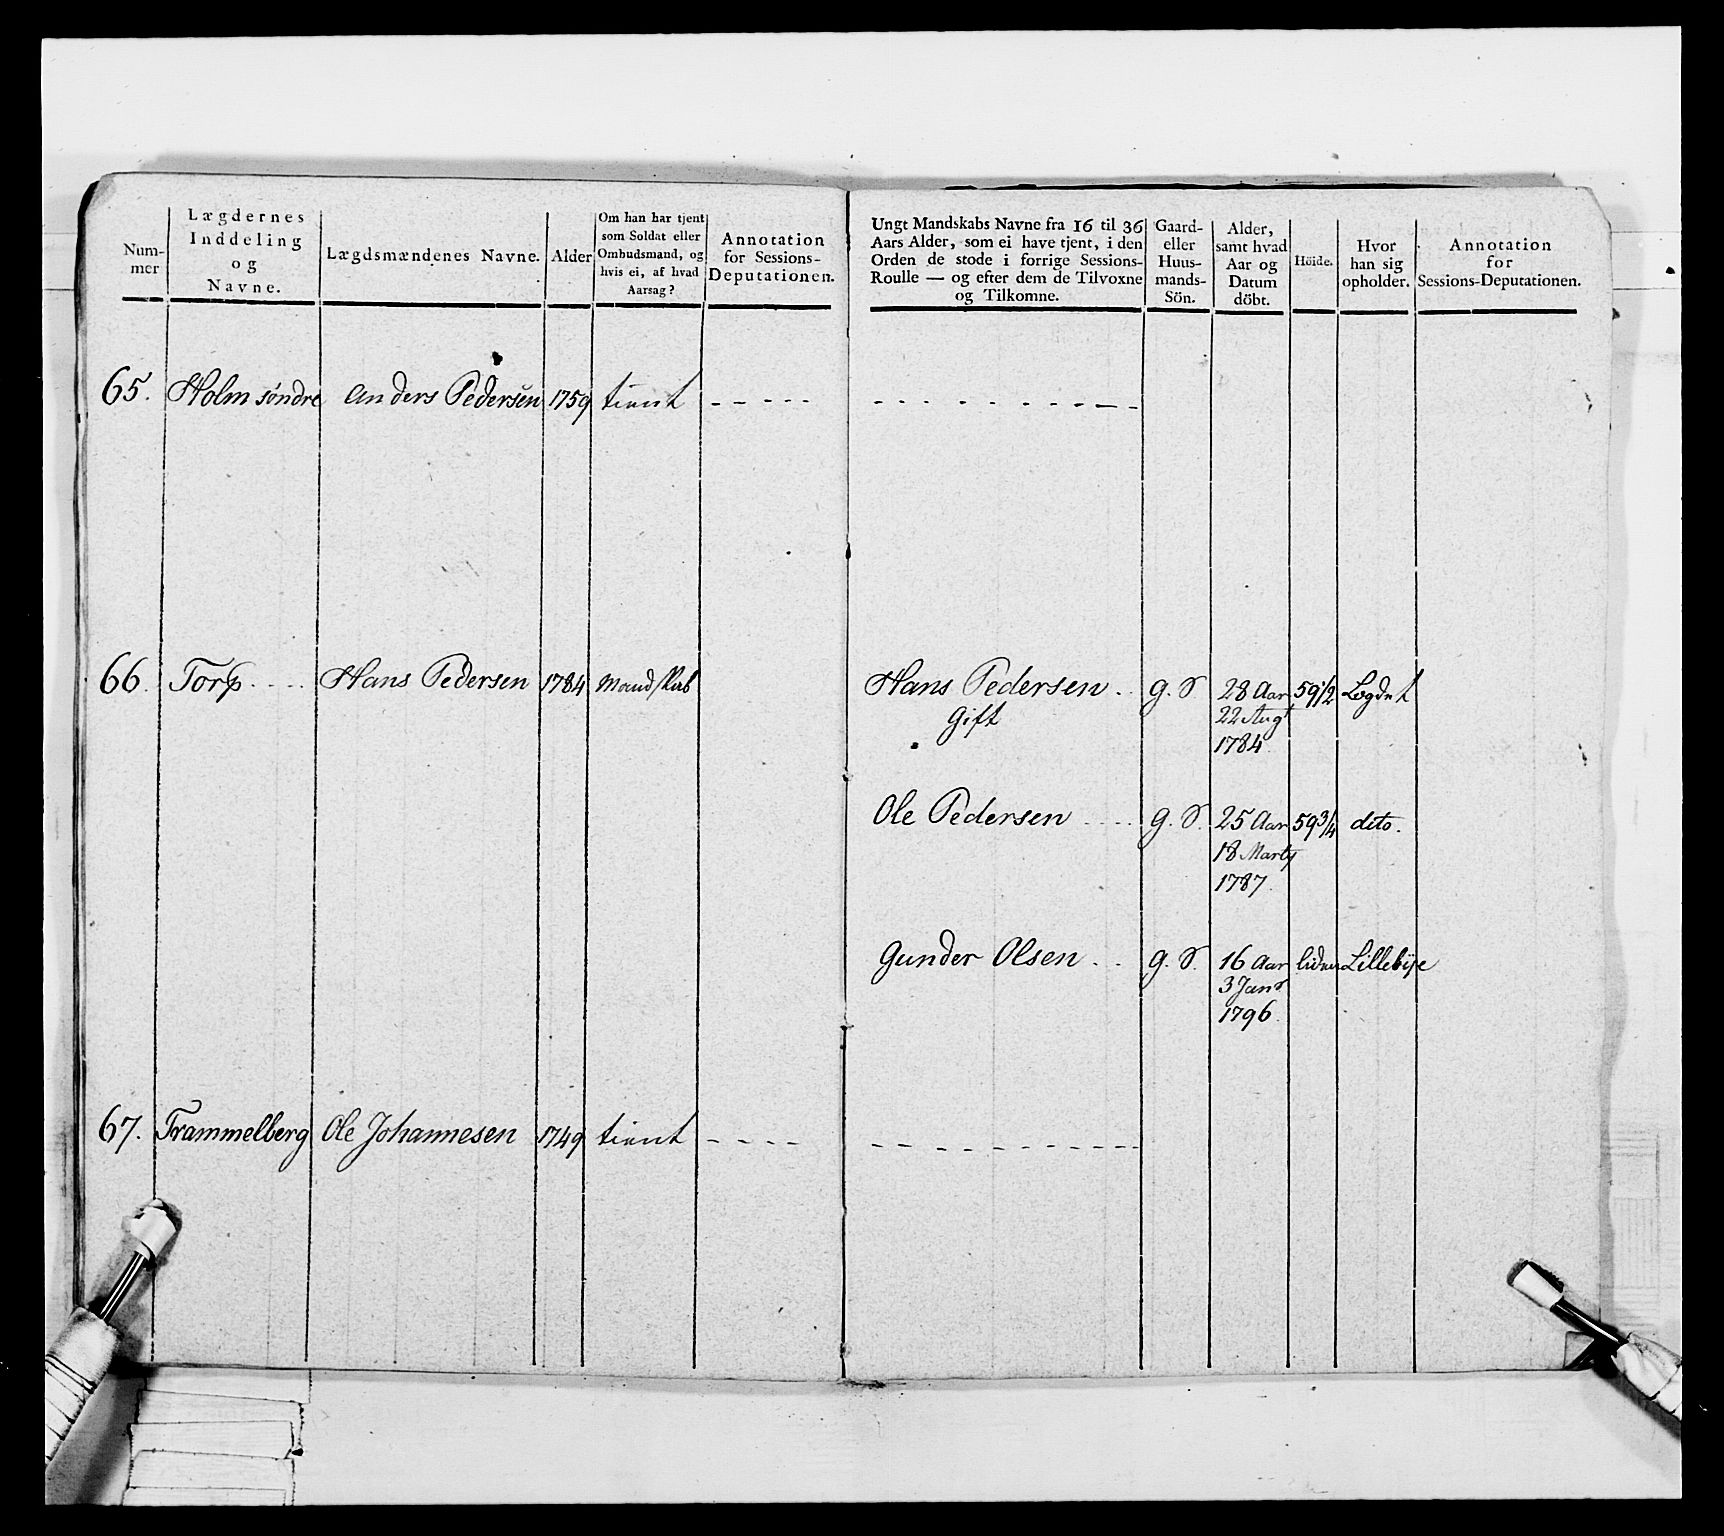 Num-
mer
Lægdernes
Inddeling
og
Navne.
Lægdsmændenes Navne.
Alder
Om han har tjent
som Soldat eller
Ombudsmand, og
hvis ei, af hvad
Aarsag?
Annotation
for Sessions-
Deputationen.
Ungt Mandskabs Navne fra 16 til 36
Aars Alder, som ei have tjent, i den
Orden de stode i forrige Sessions-
Roulle — og efter dem de Tilvoxne
og Tilkomne.
Gaard-
eller
Huus-
mands-
Sön.
Alder,
samt hvad
Aar og
Datum
döbt.
Höide.
Hvor
han sig
opholder.
Annotation
for
Sessions-Deputationen.
65. Holm söndre Anders Pedersen 1759 tient - - - - - - - - - - - - - -
66. Torp - - - Hans Pedersen 1784 Mandskab Hans Pedersen . . G. S 28 Aar 59 1/2 Lægdet
Gift 22 Augt
1784
Ole Pedersen - - - - G. S. 25 Aar 59 3/4 dito.
18 Marty
1787.
Gunder Olsen . . G. S. 16 Aar liden Lillebÿe
3 Janr
1796.
67. Trammelberg Ole Johannesen 1749 tient - - - - - - - - - - - - - -